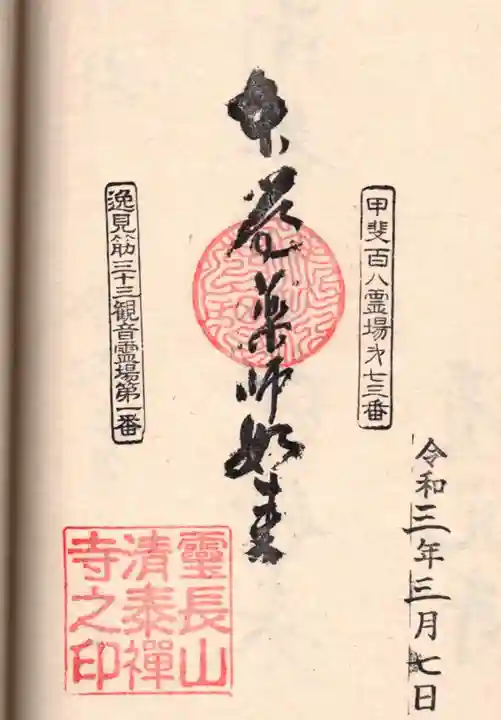 令和三年三月七日
甲斐百八霊場才七三番
薬師如来
逸見筋三十三観音霊場第一番
靈長山
清泰禪
寺之印